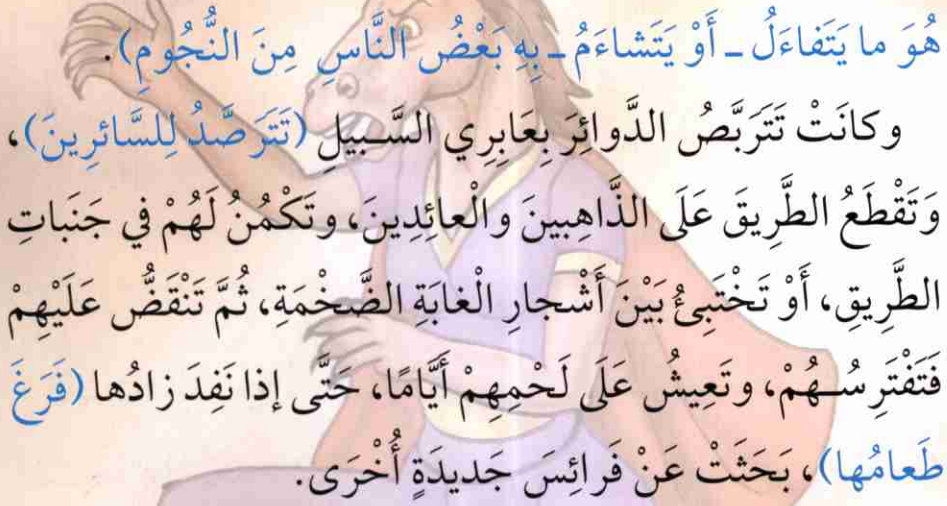 هُوَ ما يَتَفاءَلُ ـ أَوْ يَتَشاءَمُ ـ بِهِ بَعْضُ النَّاسِ مِنَ النُّجُومِ).
وكانَتْ تَتَرَبَّصُ الدَّوائِرَ بِعَابِرِي السَّبيلِ (تَتَرَصَّدُ لِلسَّائِرِينَ)،
وَتَقْطَعُ الطَّرِيقَ عَلَى الذَّاهِبينَ والْعائِدِينَ، وتَكْمُنُ لَهُمْ في جَنَباتِ
الطَّرِيقِ، أَوْ تَخْتَبِئُ بَيْنَ أَشْجارِ الْغابَةِ الضَّخْمَةِ، ثُمَّ تَنْقَضُّ عَلَيْهِمْ
فَتَفْتَرِسُهُمْ، وتَعِيشُ عَلَى لَحْمِهِمْ أَيَّامًا، حَتَّى إذا نَفِدَ زادُها (فَرَغَ
طَعامُها)، بَحَثَتْ عَنْ فَرائِسَ جَديدَةٍ أُخْرَى.